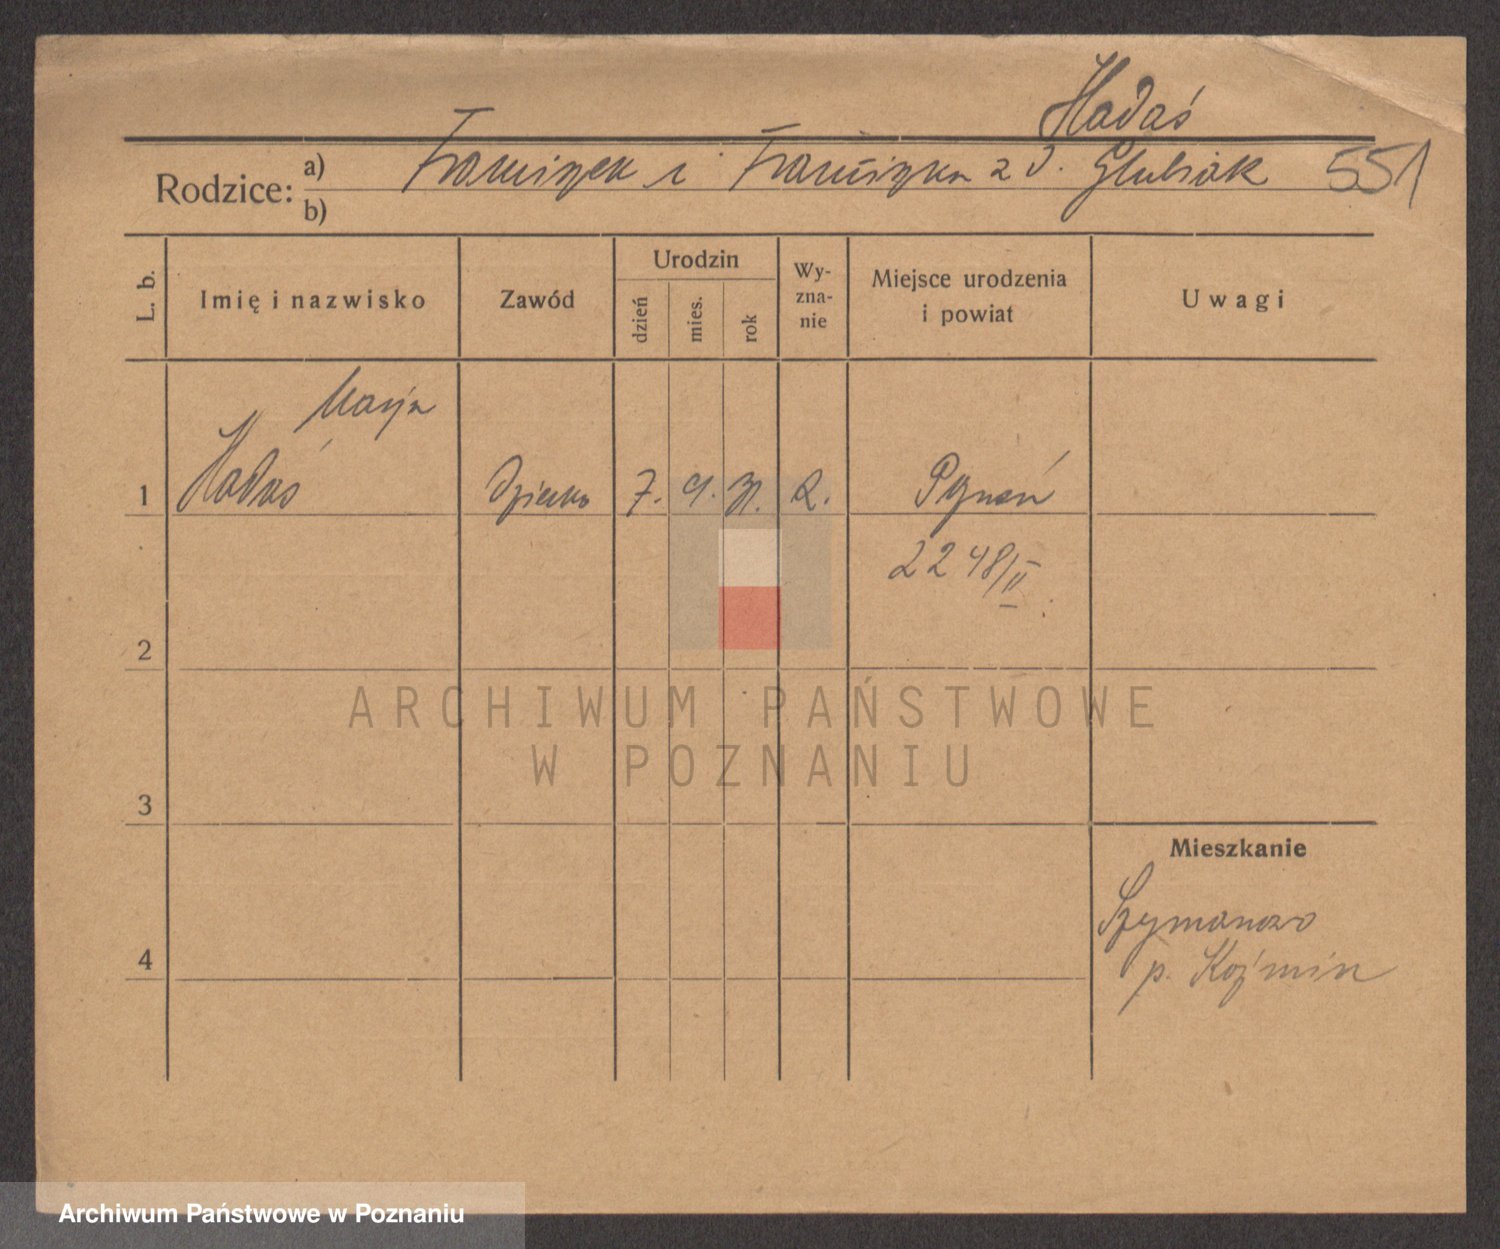 Hadaś
Rodzice: a) Franciszek i Franciszka z d. Glubiak 551
b)
L. b. Imię i nazwisko Zawód Urodzin dzień mies. rok Wyznanie Miejsce urodzenia i powiat Uwagi
Marja
1 Hadaś dziecko 7. 9. 31. R. Poznań
2248/II
2
ARCHIWUM PAŃSTWOWE
W POZNANIU
3
Mieszkanie
Szymanowo
4 p. Koźmin
Archiwum Państwowe w Poznaniu